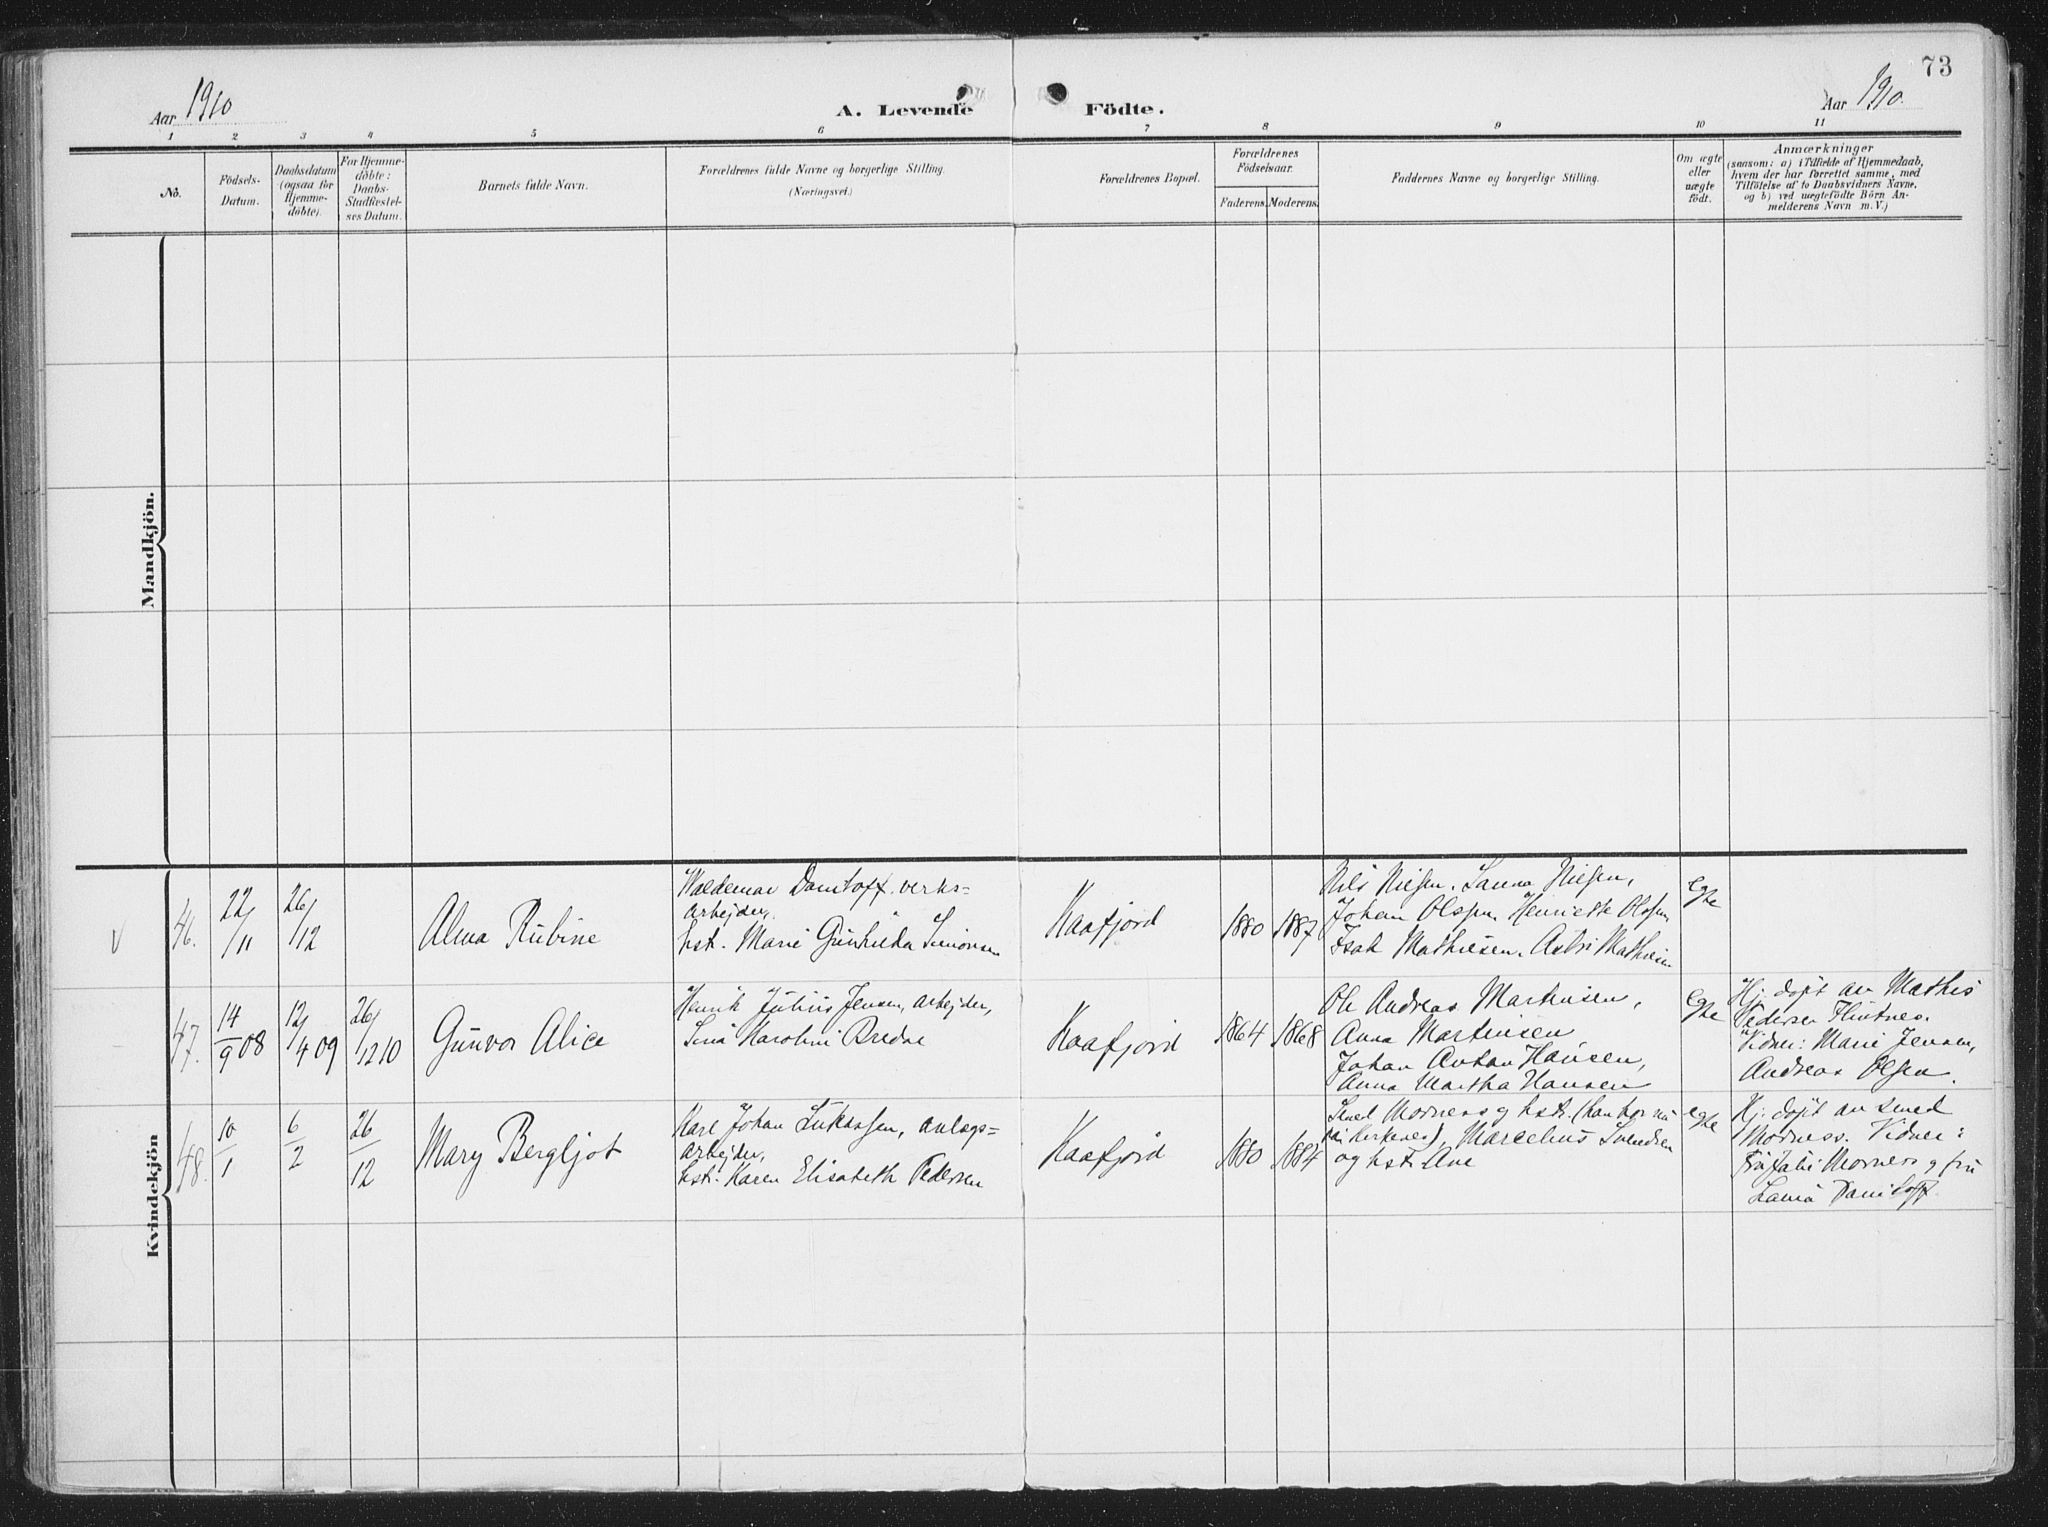 73
Aar 1910
A. Levende Födte.
Aar 1910.
1 2 3 4 5 6 7 8 9 10 11
No.
Födsels-
Datum.
Daabsdatum
(ogsaa for
Hjemme-
döbte).
For Hjemme-
döbte:
Daabs-
Stadfæstel-
ses Datum.
Barnets fulde Navn.
Forældrenes fulde Navne og borgerlige Stilling.
(Næringsvei.)
Forældrenes Bopæl.
Forældrenes
Födselsaar.
Faderens. Moderens.
Faddernes Navne og borgerlige Stilling.
Om ægte
eller
uægte
födt.
Anmærkninger
(saasom: a) i Tilfælde af Hjemmedaab,
hvem der har forrettet samme, med
Tilföielse af to Daabsvidners Navne,
og b) ved uægtefödte Börn An-
melderens Navn m. V.)
Mandkjön.
Kvindekjön
V
46.
22/11
26/12
Alma Rubine
Waldemar Danitoff. verks=
arbejder,
hst. Marie Gunhilda Simonsen
Kaafjord
1880
1887
Nils Nilsen. Nilsen,
Johan Olsen, Henriette Olsen,
Isak Mathisen. Astri Mathisen
egte
47.
14/9 08
12/4 09
26/12 10
Gunvor Alice
Henrik Julius Jensen, arbejder,
Karoline Bredne
Kaafjord
1864
1868
Ole Andreas Martinsen,
Anna Martinsen
Johan Anton Hansen,
Anna Martha Hansen
egte
Hj. døpt av Mathis
Pedersen Flintnes.
Vidner: Marie Jensen,
Andreas Olsen.
48.
10/1
6/2
26/12
Mary Bergljot
Karl Johan Lukassen, anlegs=
arbejder,
hst. Karen Elisabeth Pedersen
Kaafjord
1880
1884
Smed Mornes og hst. (han bor nu
i Kirkenes), Marcelius Svendsen
og hst. Ane
egte
Hj. døpt av smed
Morness. Vidner:
Fru Mornes og fru
Danitoff.